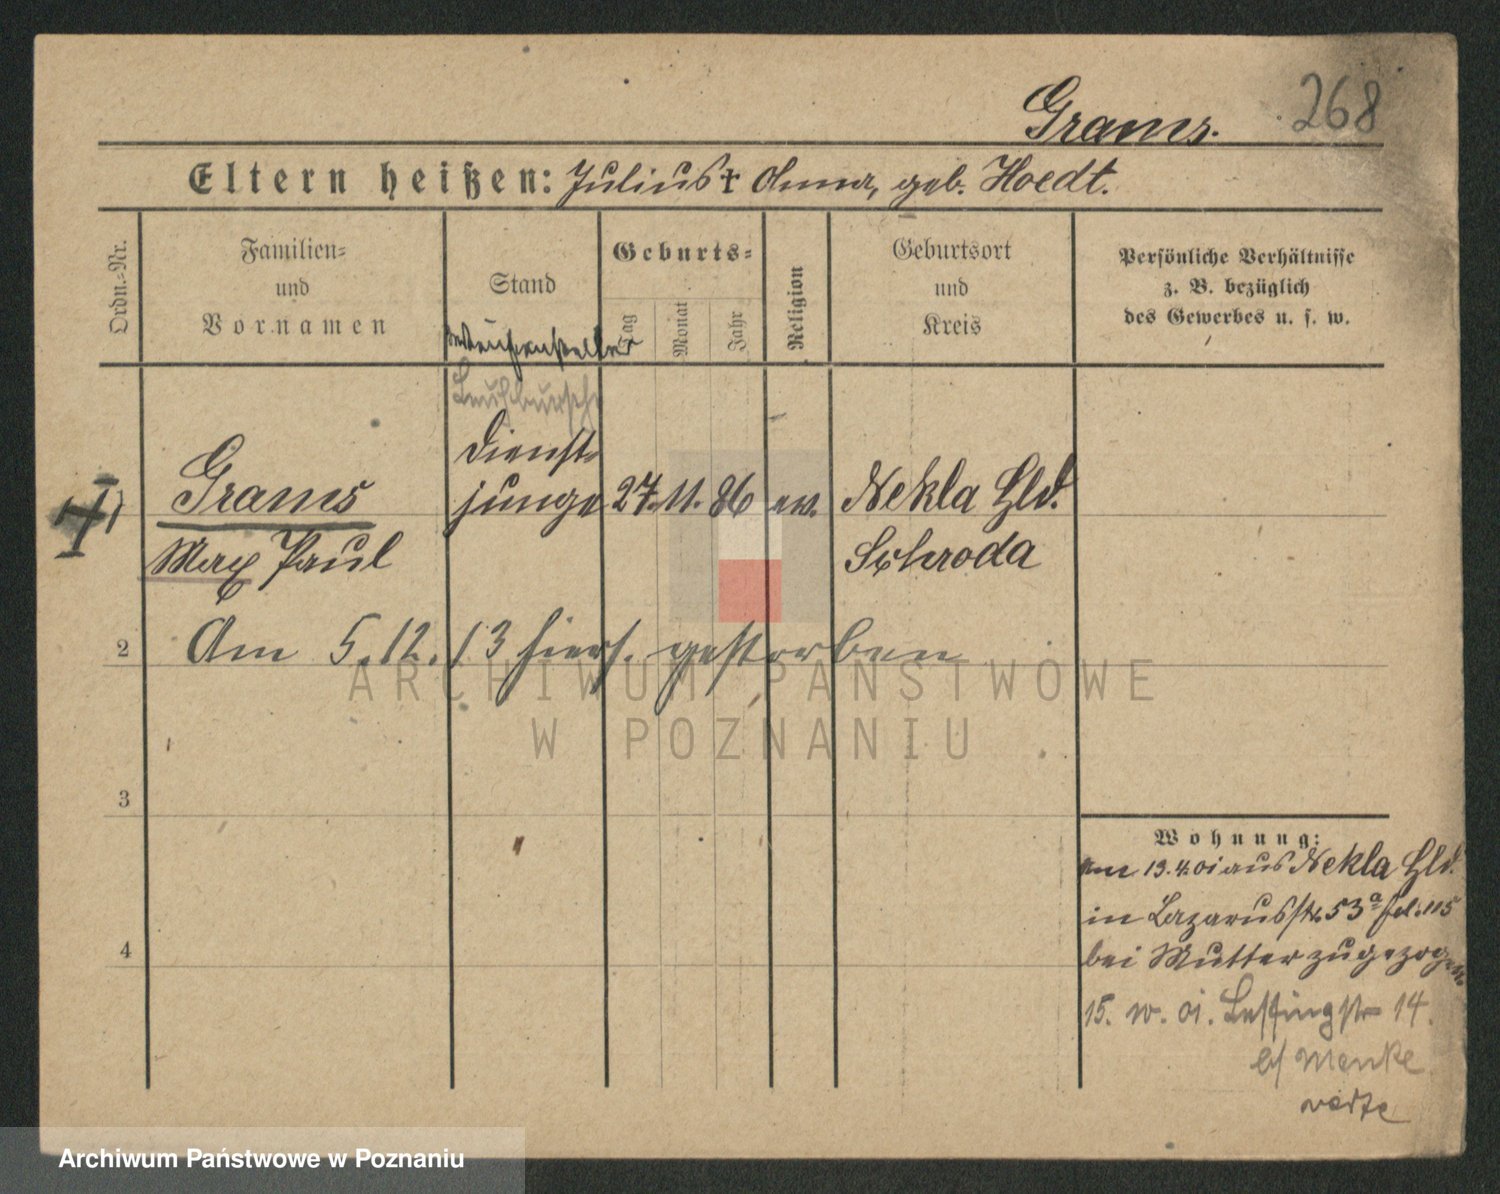 268
Grams.
Eltern heißen: Julius † Anna, geb. Hoedt.
Ordn.-Nr.
Familien-
und
Vornamen
Stand
Geburts-
Tag
Monat
Jahr
Religion
Geburtsort
und
Kreis
Persönliche Verhältnisse
z. B. bezüglich
des Gewerbes u. s. w.
Laufbursche
Dienst-
Grams junge 27. 11. 86 ev. Nekla Hld.
Max Paul Schroda
2 Am 5.12.13 hiers. gestorben
ARCHIWUM PAŃSTWOWE
W POZNANIU
3
4
Wohnung:
Am 13.4.01 aus Nekla Hld.
in Lazarusstr. 53a
bei Mutter zugezogen
15. 01. Lessingstr 14.
b/ Menke
Archiwum Państwowe w Poznaniu